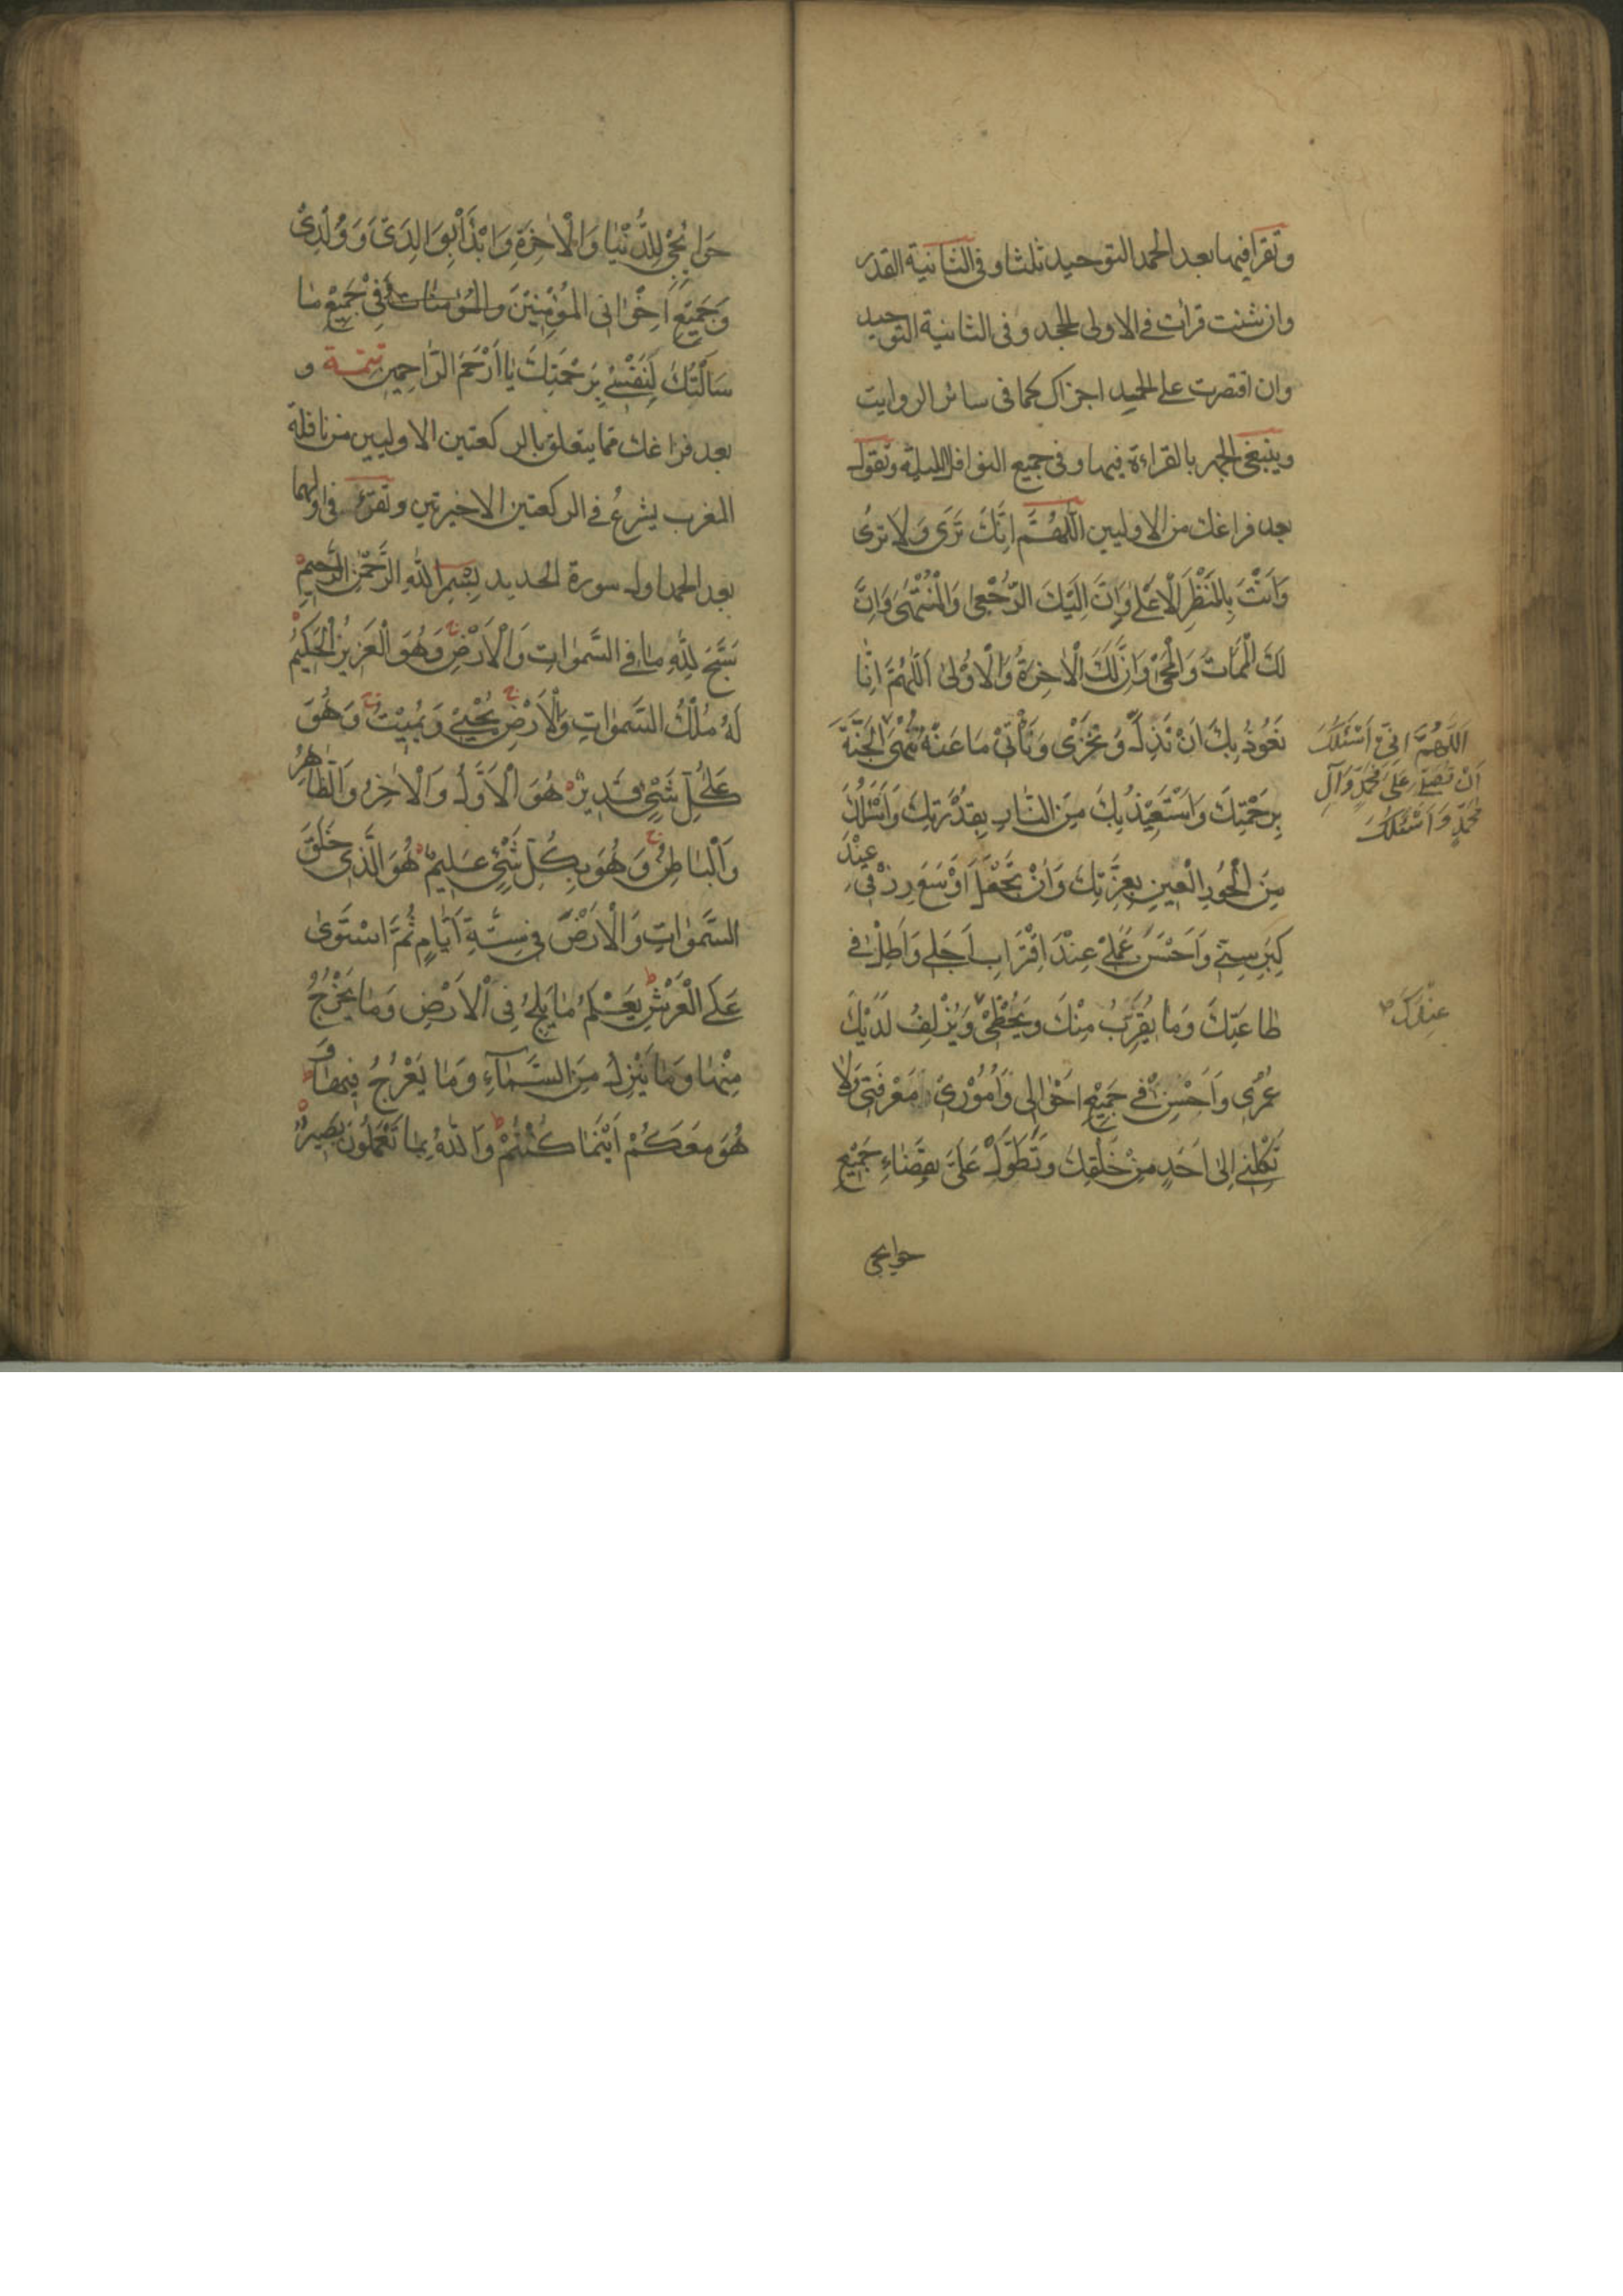 وتقرا فيهما بعد الحمد التوحيد ثلثا و فى الثانية القدر
وان شئت قرات فى الاولى الجحد و فى الثانية التوحيد
وان اقتصرت على الحمد اجزاك كما فى سائر الروايت
وينبغى الجهر بالقراءة فيهما و فى جميع النوافل الليلية وتقول
بعد فراغك من الاوليين اَللّهُمَّ اِنَّكَ تَرَى وَلَا تُرىٰ
وَاَنْتَ بِالْمَنْظَرِ الْاَعْلىٰ وَاِنَّ اِلَيْكَ الرُّجْعىٰ وَالْمُنْتَهىٰ وَاِنَّ
لَكَ الْمَمَاتَ وَالْمَحْيٰ وَاِنَّ لَكَ الْاٰخِرَةُ وَالْاُوْلىٰ اَللّٰهُمَّ اِنَّا
نَعُوْذُ بِكَ اَنْ نَذِلَّ وَنَخْزٰى وَنَأْتِىَ مَا عَنْهُ تُنْهىٰ الْجَنَّةَ
بِرَحْمَتِكَ وَاَسْتَعِيْذُ بِكَ مِنَ النَّارِ بِقُدْرَتِكَ وَاَسْئَلُكَ
مِنَ الْحُوْرِ الْعِيْنِ بِعِزَّتِكَ وَاَنْ تَجْعَلَ اَوْسَعَ رِزْقِىْ عِنْدَ
كِبَرِ سِنِّىْ وَاَحْسَنَ عَمَلِىْ عِنْدَ اقْتَرَابِ اَجَلِىْ وَاَطِلْ فِىْ
طَاعَتِكَ وَمَا يُقَرِّبُ مِنْكَ وَيُحْظِىْ وَيُزْلِفُ لَدَيْكَ
عُمْرِى وَاَحْسِنْ فِىْ جَمِيْعِ اَحْوَالِى وَاُمُوْرِىْ مَعْرِفَتِىْ وَلَا
تَكِلْنِىْ اِلىٰ اَحَدٍ مِنْ خَلْقِكَ وَتَطَوَّلْ عَلَىَّ بِقَضَاءِ جَمِيْعِ
حوايجى
اَللّهُمَّ اِنِّىْ اَسْئَلُكَ
اَنْ تُصَلِّىَ عَلىٰ مُحَمَّدٍ وَآلِ
مُحَمَّدٍ وَاَسْئَلُكَ
عِنْدَكَ
حَوَائِجِىْ لِلدُّنْيَا وَالْاٰخِرَةِ وَابْدَأْ بِوَالِدَىَّ وَوُلْدِىْ
وَجَمِيْعِ اِخْوَانِى الْمُؤْمِنِيْنَ وَالْمُؤْمِنَاتِ فِىْ جَمِيْعِ مَا
سَاَلْتُكَ لِنَفْسِىْ بِرَحْمَتِكَ يَا اَرْحَمَ الرَّاحِمِيْنَ تتمـة و
بعد فراغك مما يتعلق بالركعتين الاوليين من نافلة
المغرب يشرع فى الركعتين الاخيرتين وتقرء فى اولهما
بعد الحمد اول سورة الحديد بِسْمِ اللّٰهِ الرَّحْمٰنِ الرَّحِيْمِ
سَبَّحَ لِلّٰهِ مَا فِى السَّمٰوَاتِ وَالْاَرْضِ وَهُوَ الْعَزِيْزُ الْحَكِيْمُ
لَهُ مُلْكُ السَّمٰوَاتِ وَالْاَرْضِ يُحْيِىْ وَيُمِيْتُ وَهُوَ
عَلىٰ كُلِّ شَىْءٍ قَدِيْرٌ هُوَ الْاَوَّلُ وَالْاٰخِرُ وَالظَّاهِرُ
وَالْبَاطِنُ وَهُوَ بِكُلِّ شَىْءٍ عَلِيْمٌ هُوَ الَّذِىْ خَلَقَ
السَّمٰوَاتِ وَالْاَرْضَ فِىْ سِتَّةِ اَيَّامٍ ثُمَّ اسْتَوىٰ
عَلَى الْعَرْشِ يَعْلَمُ مَا يَلِجُ فِى الْاَرْضِ وَمَا يَخْرُجُ
مِنْهَا وَمَا يَنْزِلُ مِنَ السَّمَآءِ وَمَا يَعْرُجُ فِيْهَا وَ
هُوَ مَعَكُمْ اَيْنَمَا كُنْتُمْ وَاللّٰهُ بِمَا تَعْمَلُوْنَ بَصِيْرٌ